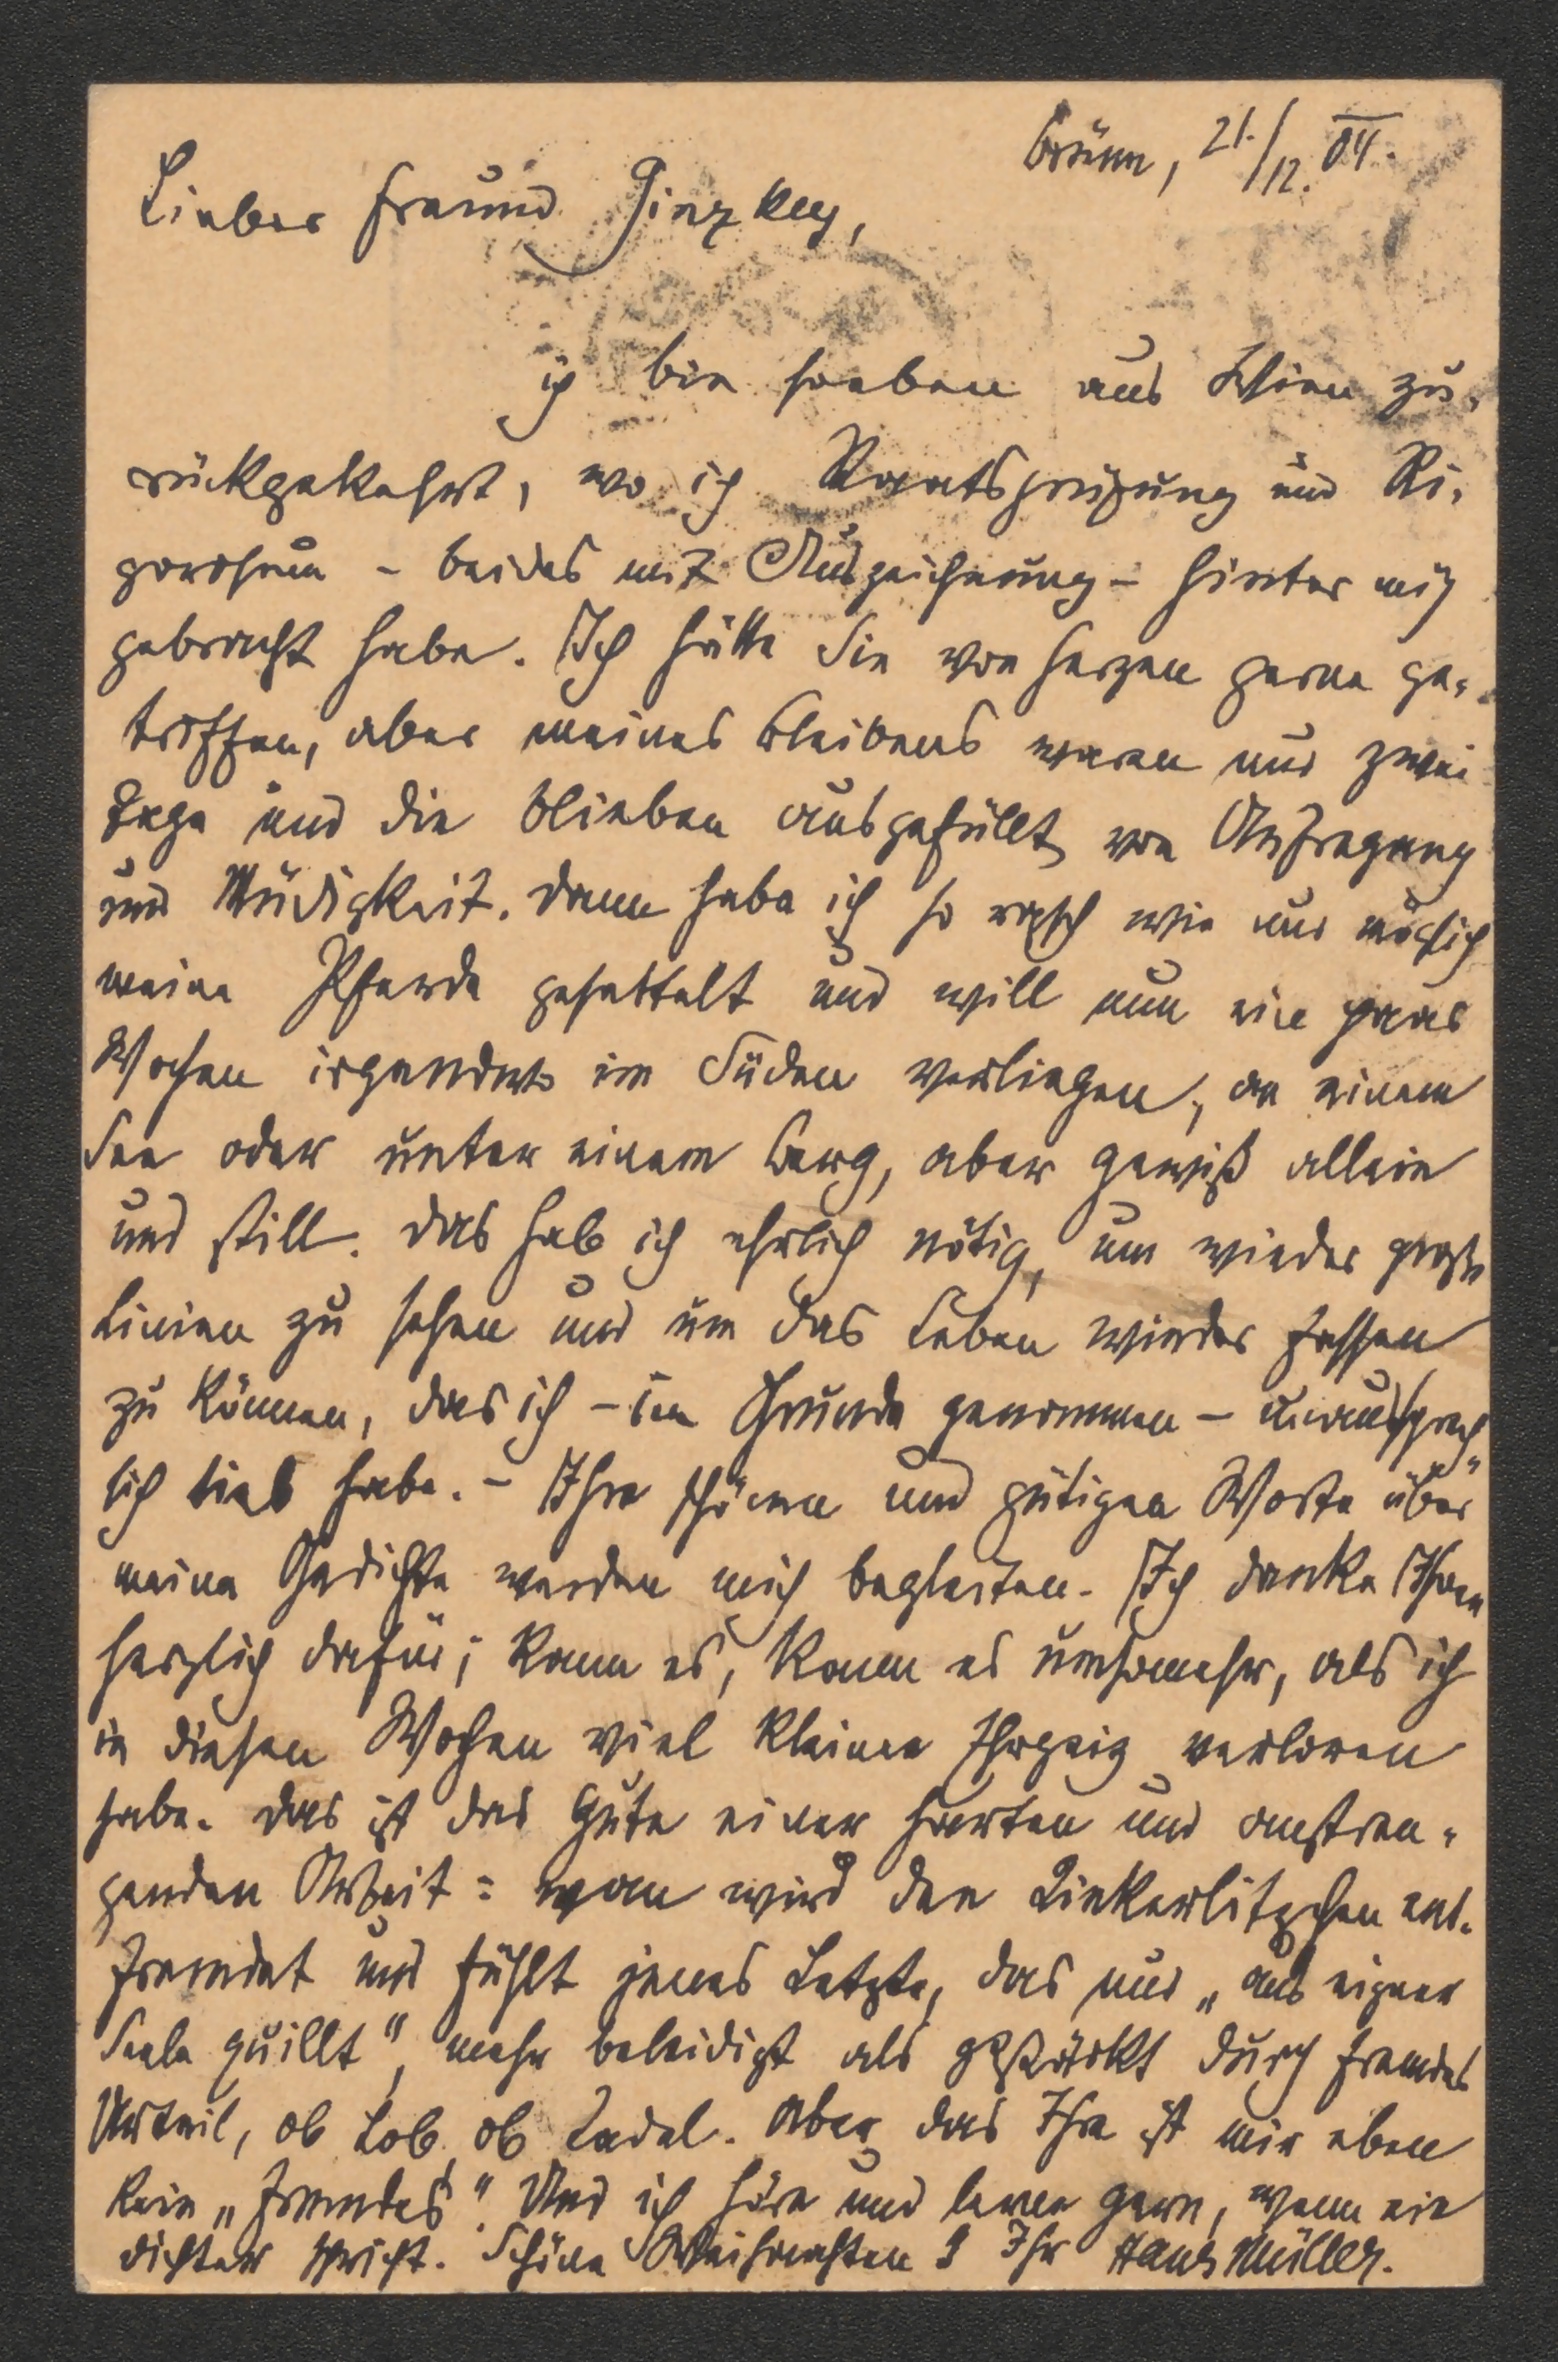 Brünn, 21./12. 04.
Lieber Freund Ginzkey,
ich bin soeben aus Wien zu-
rückgekehrt, wo ich Staatsprüfung und Ri-
gorosum - beides mit Auszeichnung - hinter mich
gebracht habe. Ich hätte Sie von Herzen gerne ge-
troffen, aber meines Bleibens waren nur zwei
Tage und die blieben ausgefüllt von Aufregung
und Müdigkeit. Dann habe ich so rasch wie nur möglich
meine Pferde gesattelt und will nun ein paar
Wochen irgendwo im Süden verliegen, an einem
See oder unter einem Berg, aber gewiß allein
und still. Das hab ich ehrlich nötig, um wieder große
Linien zu sehen und um das Leben wieder fassen
zu können, das ich - im Grunde genommen - unaussprech-
lich lieb habe. - Ihre schönen und gütigen Worte über
meine Gedichte werden mich begleiten. Ich danke Ihnen
herzlich dafür; kann es, kann es umsomehr, als ich
in diesen Wochen viel kleinen Ehrgeiz verloren
habe. Das ist das Gute einer harten und anstren-
genden Arbeit: man wird den Zinkerlitzchen ent-
fremdet und fühlt jenes Letzte, das nur „aus eigner
Seele quillt", mehr beleidigt als gestärkt durch fremdes
Urteil, ob Lob, ob Tadel. Aber das Ihre ist mir eben
kein „fremdes". Und ich höre und lerne gern, wenn ein
Dichter spricht. Schöne Weihnachten! Ihr Hans Müller.